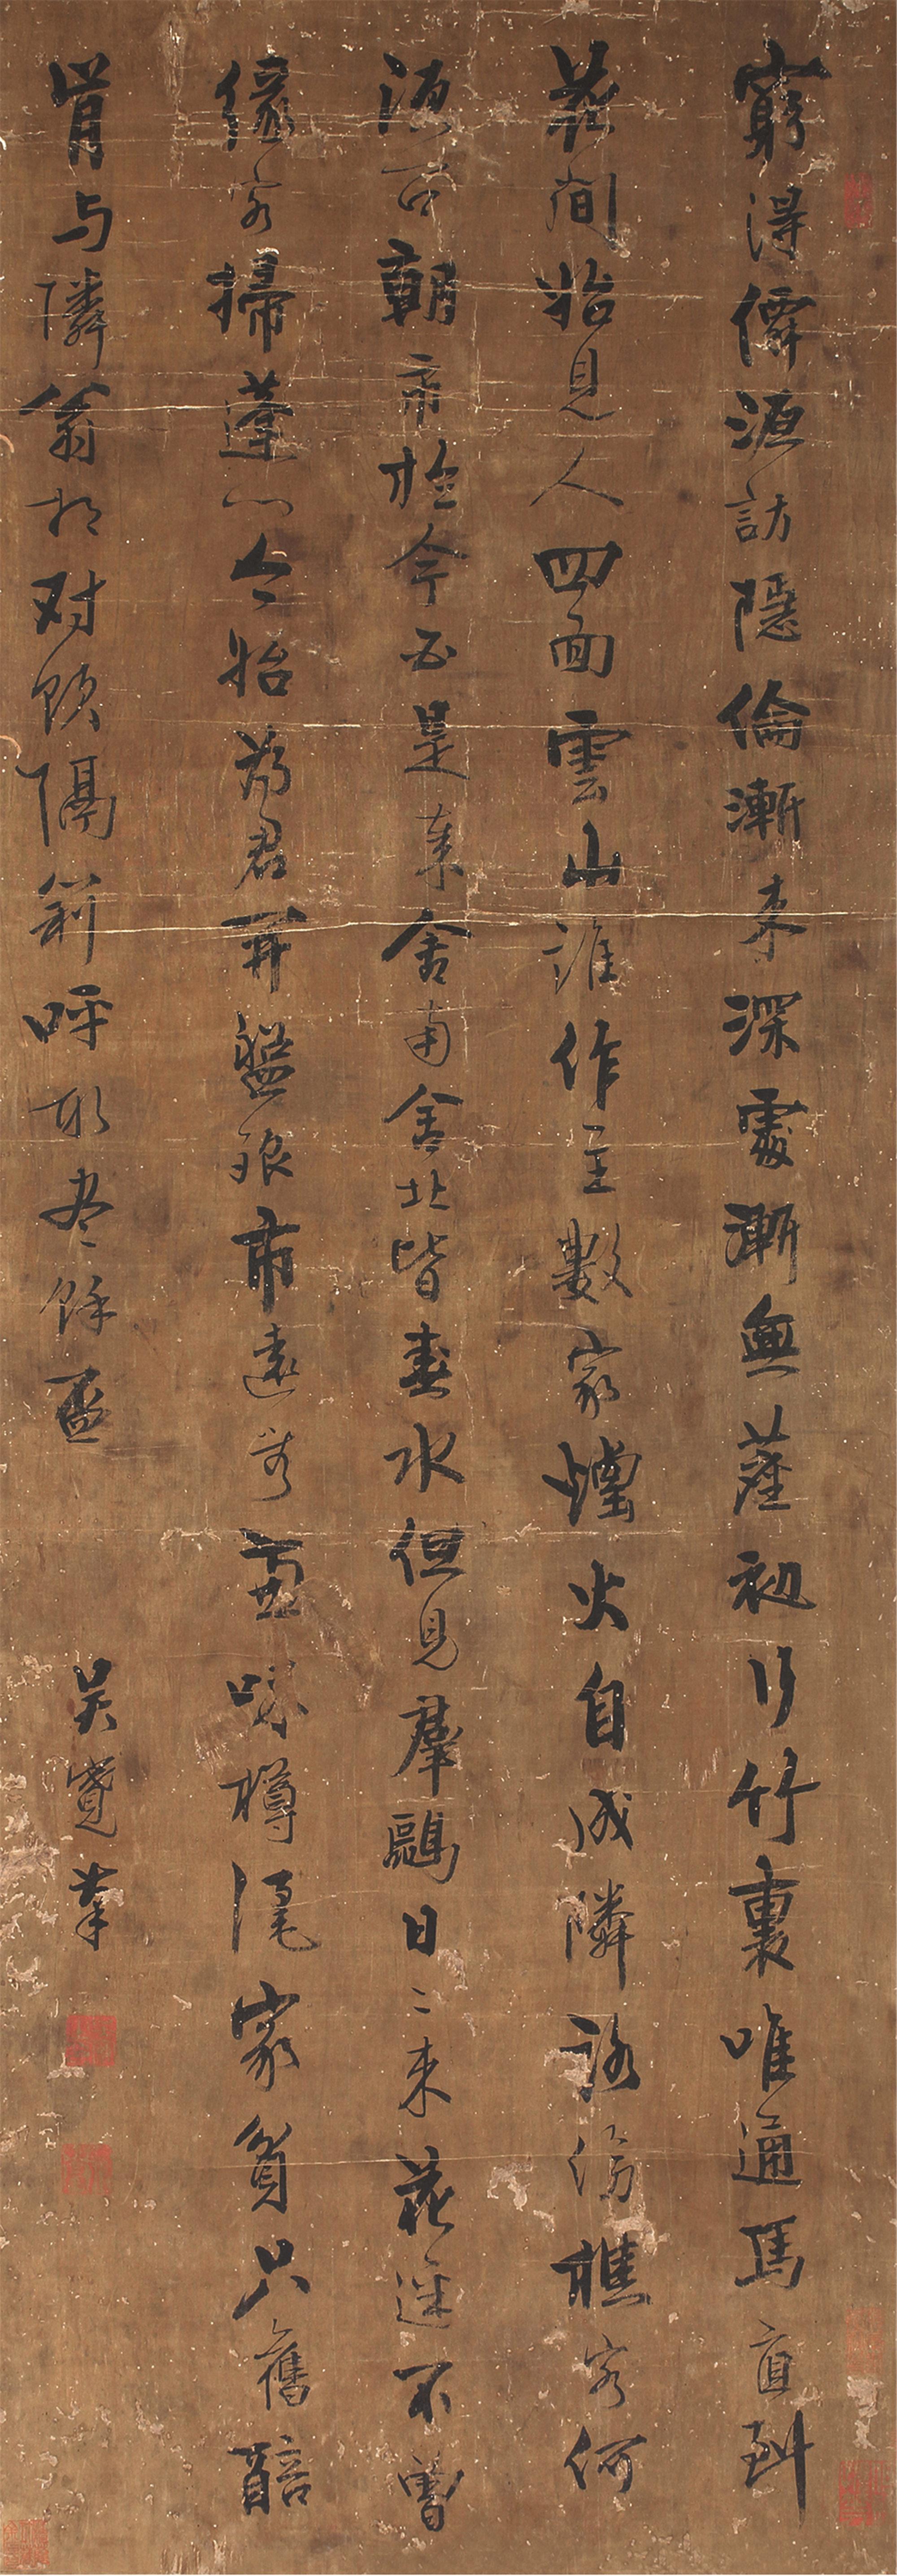 窮得僊源訪隱倫漸来深處漸無塵初行竹裏唯通馬直到
花間始見人四面雲山誰作主數家煙火自成隣路傍樵客何
須問朝市於今不是秦舍南舍北皆春水但見羣鷗日〻来花逕不曾
緣客掃蓬門今始為君開盤飱市遠無兼味樽酒家貧只舊醅
肯与隣翁相对飲隔籬呼取尽餘盃
吳寬